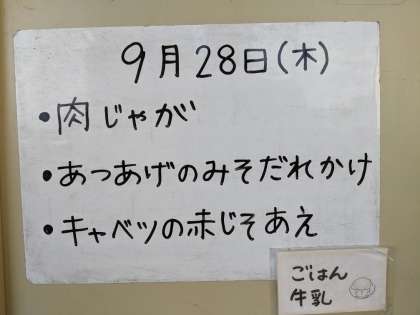 9月28日(木)
・肉じゃが
・あつあげのみそだれかけ
・キャベツの赤じそあえ
ごはん
牛乳